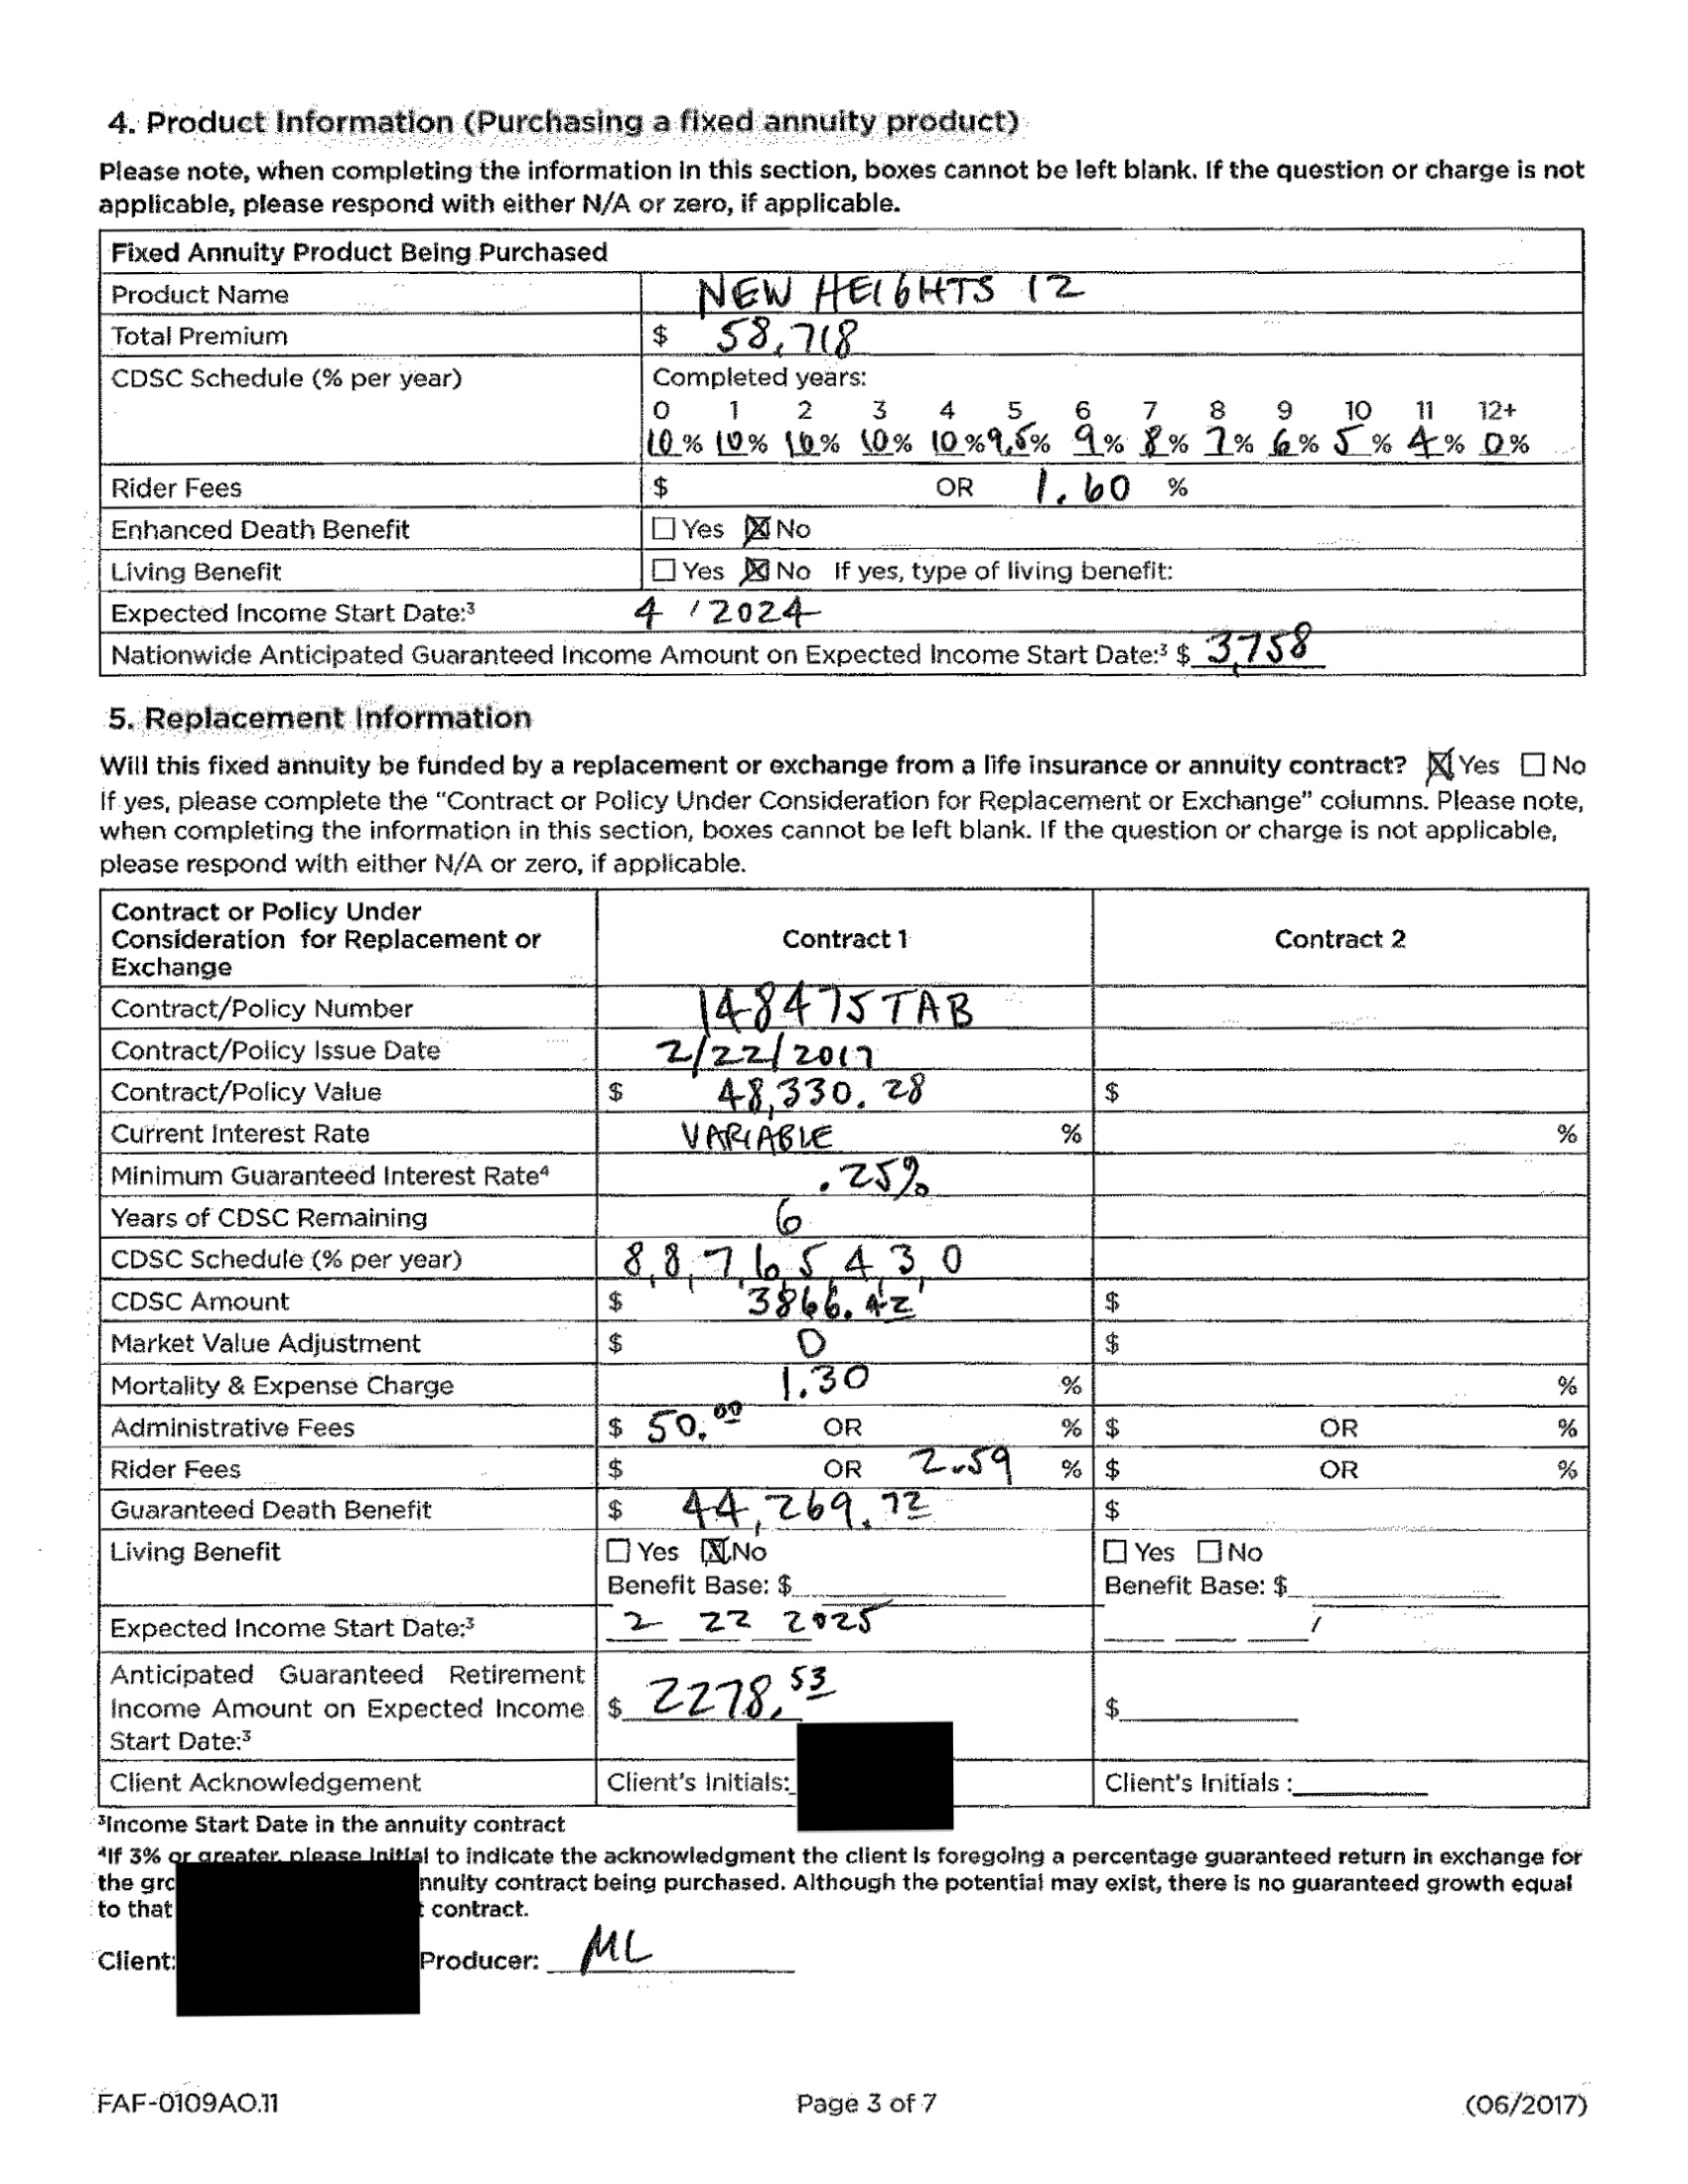 4. Product Information (Purchasing a fixed annuity product)
Please note, when completing the information in this section, boxes cannot be left blank. If the question or charge is not
applicable, please respond with either N/A or zero, if applicable.
Fixed Annuity Product Being Purchased
Product Name NEW HEIGHTS 12
Total Premium $ 58,718
CDSC Schedule (% per year) Completed years:
0 1 2 3 4 5 6 7 8 9 10 11 12+
10% 10% 10% 10% 10% 9.5% 9% 8% 7% 6% 5% 4% 0%
Rider Fees $ OR 1.60 %
Enhanced Death Benefit ☐ Yes ☒ No
Living Benefit ☐ Yes ☒ No If yes, type of living benefit:
Expected Income Start Date:³ 4 / 2024
Nationwide Anticipated Guaranteed Income Amount on Expected Income Start Date:³ $ 3,758
5. Replacement Information
Will this fixed annuity be funded by a replacement or exchange from a life insurance or annuity contract? ☒ Yes ☐ No
If yes, please complete the “Contract or Policy Under Consideration for Replacement or Exchange” columns. Please note,
when completing the information in this section, boxes cannot be left blank. If the question or charge is not applicable,
please respond with either N/A or zero, if applicable.
Contract or Policy Under
Consideration for Replacement or Contract 1 Contract 2
Exchange
Contract/Policy Number 148475TAB
Contract/Policy Issue Date 2/22/2017
Contract/Policy Value $ 48,330.28 $
Current Interest Rate VARIABLE % %
Minimum Guaranteed Interest Rate⁴ .25%
Years of CDSC Remaining 6
CDSC Schedule (% per year) 8,8,7,6,5,4,3,0
CDSC Amount $ 3866.42 $
Market Value Adjustment $ 0 $
Mortality & Expense Charge 1.30 % %
Administrative Fees $ 50.00 OR % $ OR %
Rider Fees $ OR 2.59 % $ OR %
Guaranteed Death Benefit $ 44,269.72 $
Living Benefit ☐ Yes ☒ No ☐ Yes ☐ No
Benefit Base: $ Benefit Base: $
Expected Income Start Date:³ 2 22 2025 /
Anticipated Guaranteed Retirement
Income Amount on Expected Income $ 2278.53 $
Start Date:³
Client Acknowledgement Client's Initials: Client's Initials :
³Income Start Date in the annuity contract
⁴If 3% or greater, please initial to indicate the acknowledgment the client is foregoing a percentage guaranteed return in exchange for
the gro nnuity contract being purchased. Although the potential may exist, there is no guaranteed growth equal
to that contract.
Client: Producer: ML
FAF-0109AO.11 Page 3 of 7 (06/2017)